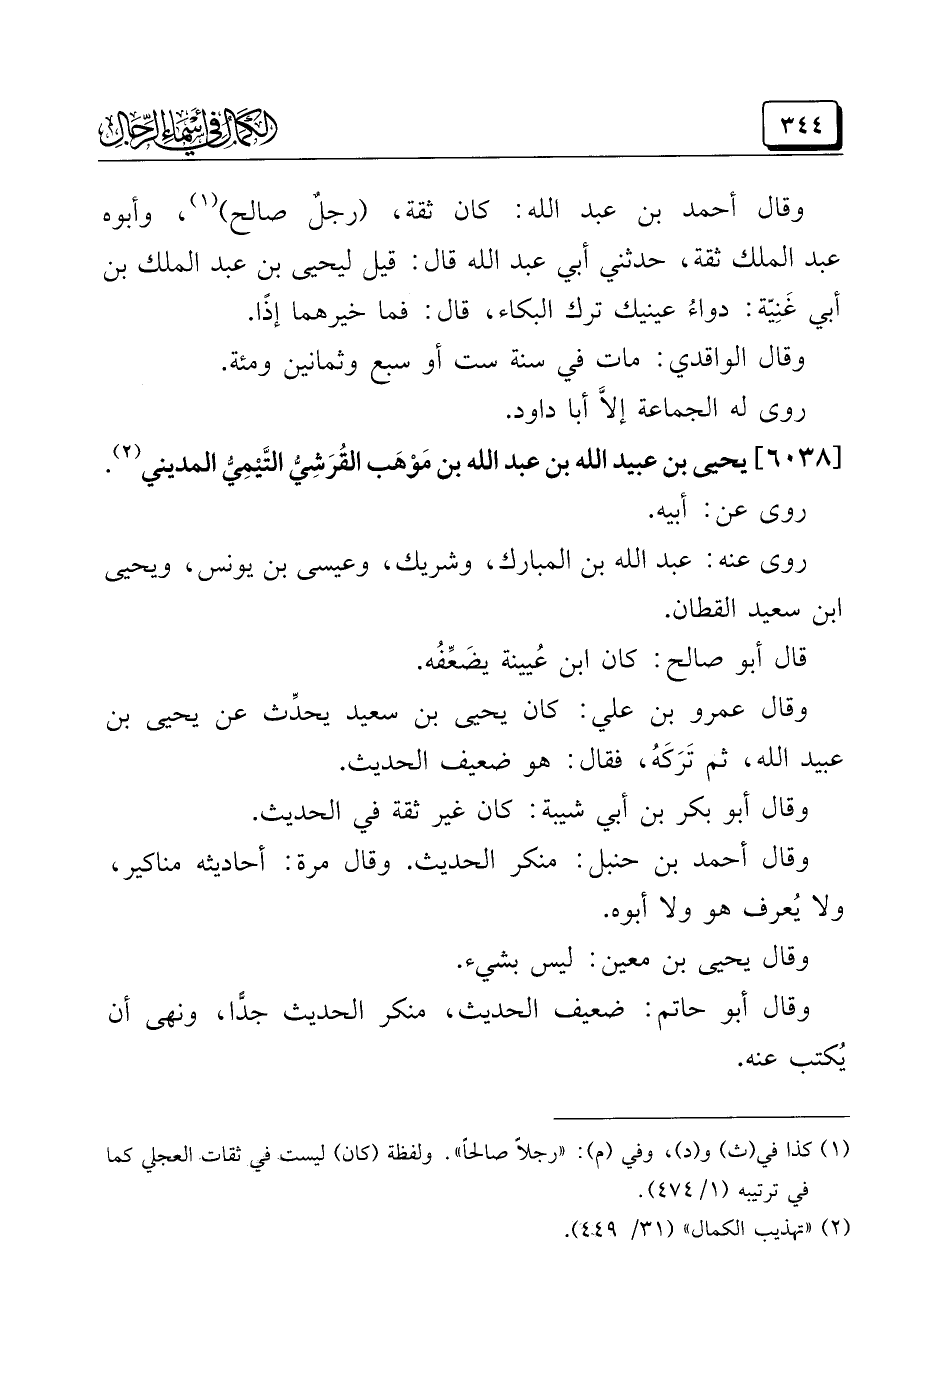 ٣٤٤
الكمال في أسماء الرجال
وقال أحمد بن عبد الله: كان ثقة، (رجلٌ صالح)(١)، وأبوه
عبد الملك ثقة، حدثني أبي عبد الله قال: قيل ليحيى بن عبد الملك بن
أبي غَنِيّة: دواءُ عينيك ترك البكاء، قال: فما خيرهما إذًا.
وقال الواقدي: مات في سنة ست أو سبع وثمانين ومئة.
روى له الجماعة إلاَّ أبا داود.
[٦٠٣٨] يحيى بن عبيد الله بن عبد الله بن مَوْهَب القُرَشيُّ التَّيْمِيُّ المديني(٢).
روى عن: أبيه.
روى عنه: عبد الله بن المبارك، وشريك، وعيسى بن يونس، ويحيى
ابن سعيد القطان.
قال أبو صالح: كان ابن عُيينة يضَعِّفُه.
وقال عمرو بن علي: كان يحيى بن سعيد يحدِّث عن يحيى بن
عبيد الله، ثم تَرَكَهُ، فقال: هو ضعيف الحديث.
وقال أبو بكر بن أبي شيبة: كان غير ثقة في الحديث.
وقال أحمد بن حنبل: منكر الحديث. وقال مرة: أحاديثه مناكير،
ولا يُعرف هو ولا أبوه.
وقال يحيى بن معين: ليس بشيء.
وقال أبو حاتم: ضعيف الحديث، منكر الحديث جدًّا، ونهى أن
يُكتب عنه.
(١) كذا في(ث) و(د)، وفي (م): «رجلاً صالحاً». ولفظة (كان) ليست في ثقات العجلي كما
في ترتيبه (١/ ٤٧٤).
(٢) «تهذيب الكمال» (٣١/ ٤٤٩).